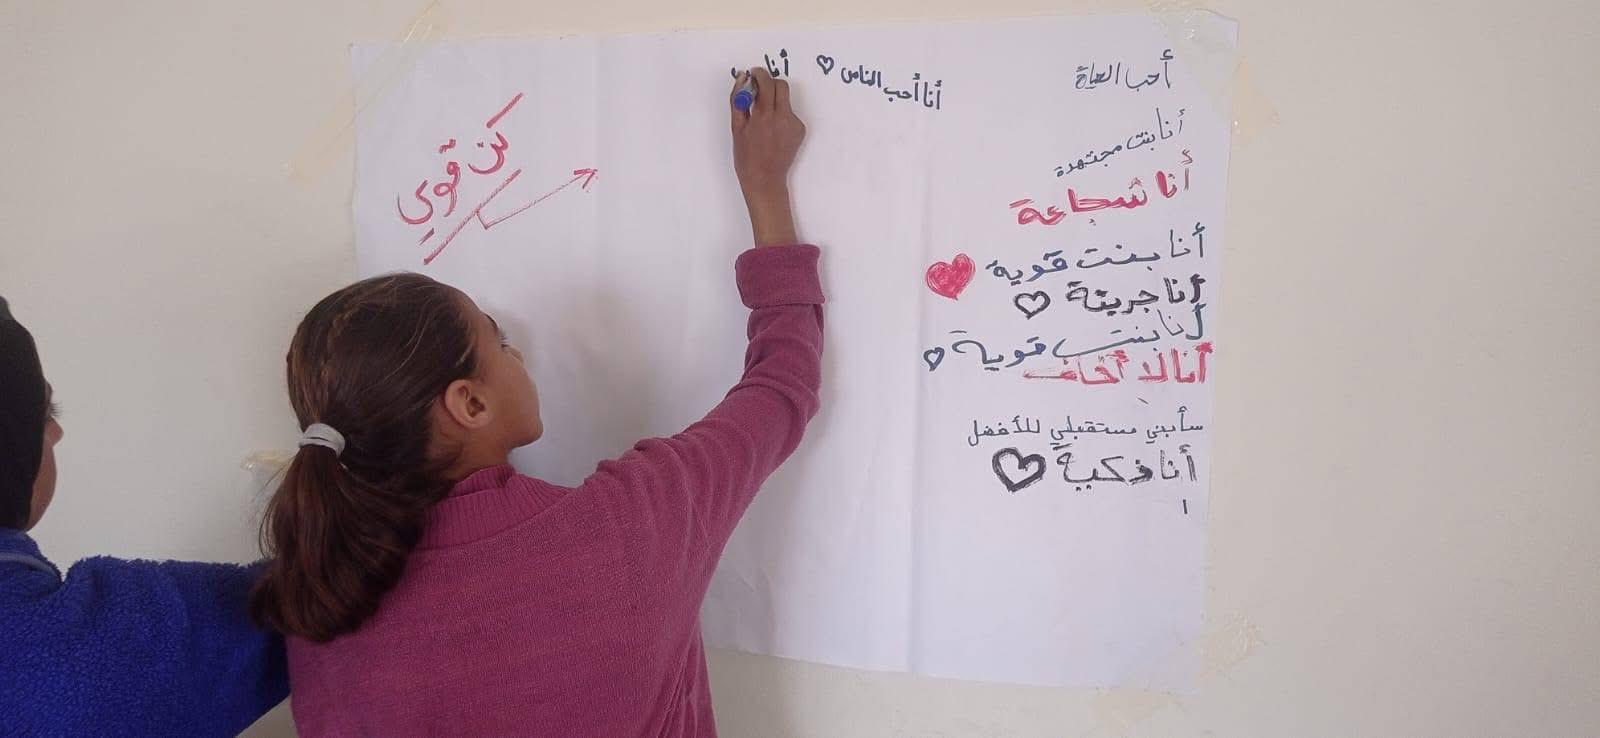 أحب الحياة
أنا بنت مجتهدة
أنا شجاعة
أنا بنت قوية
أنا جريئة
أنا بنت قوية
أنا لا أخاف
سأبني مستقبلي للأفضل
أنا ذكية
ا
أنا أحب الناس
أنا
كن قوي